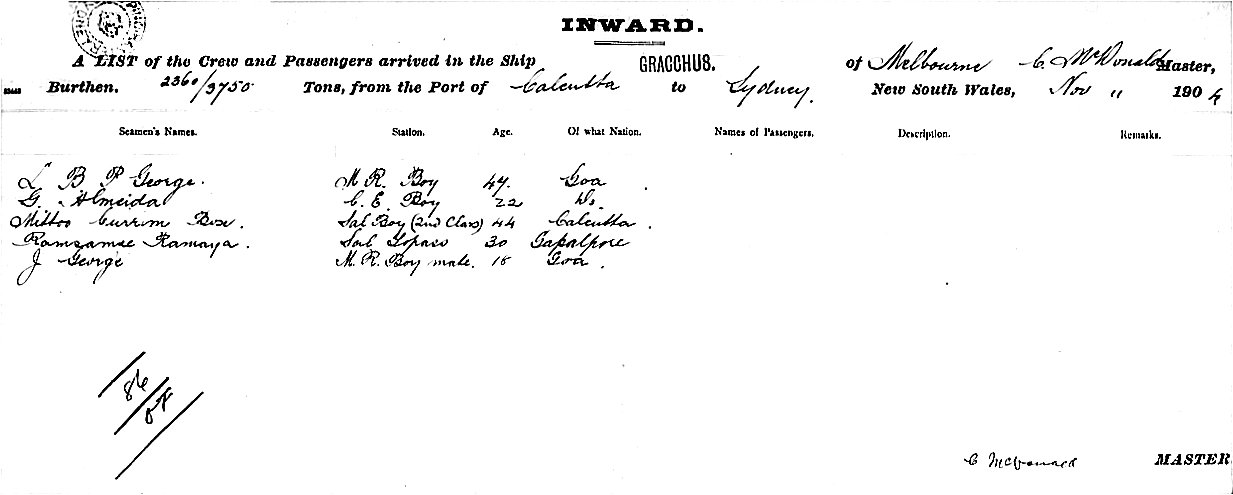 INWARD.
A LIST of the Crew and Passengers arrived in the Ship GRACCHUS. of Melbourne C. McDonald Master,
Burthen. 2360/3750 Tons, from the Port of Calcutta to Sydney. New South Wales, Nov " 1904
Seamen's Names. Station. Age. Of what Nation. Names of Passengers. Description. Remarks.
L B P George. M. R. Boy 47. Goa
G. Almeida C. E. Boy 22 Do.
Mittoo Currim Bose. Sal Boy (2nd Class) 44 Calcutta.
Ramsamee Ramaya. Sal Topass 30 Gapalpore
J George M. R. Boy mate. 18 Goa.
86
C McDonald MASTER